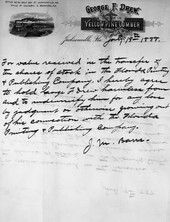 GEORGE F. DREW
YELLOW PINE LUMBER
Jacksonville, Fla. 1888.
For value received in the transfer of
ten shares of stock in the Florida Printing
& Publishing Company I hereby agree
to hold George F. Drew harmless from
and to indemnify him for any loss
by judgment or otherwise growing out
of his connection with the Florida
Printing & Publishing Company.
J. M. Barrs.